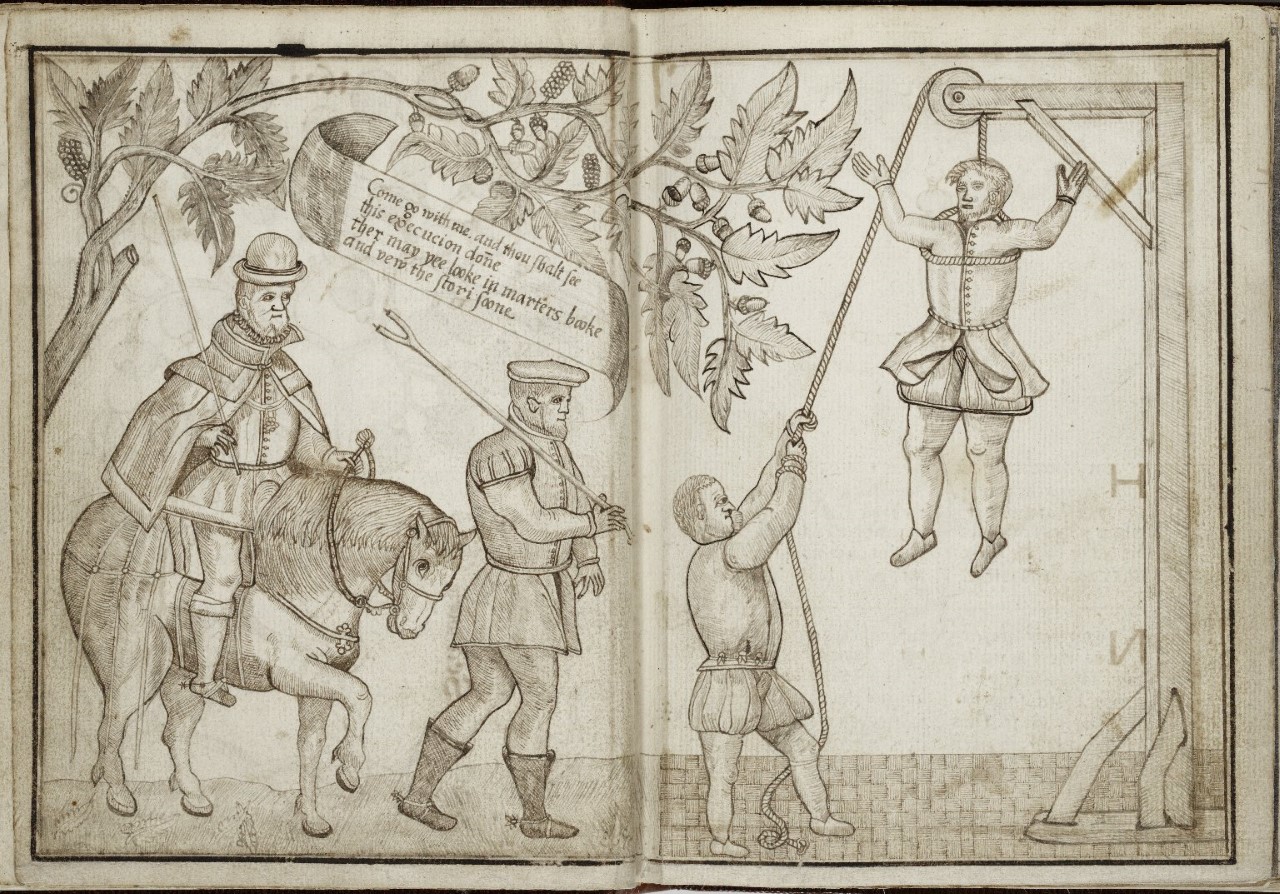 Come go with me, and thou shalt see
this execucion done
ther may yee looke in marters booke
and vew the stori soone.
H
N